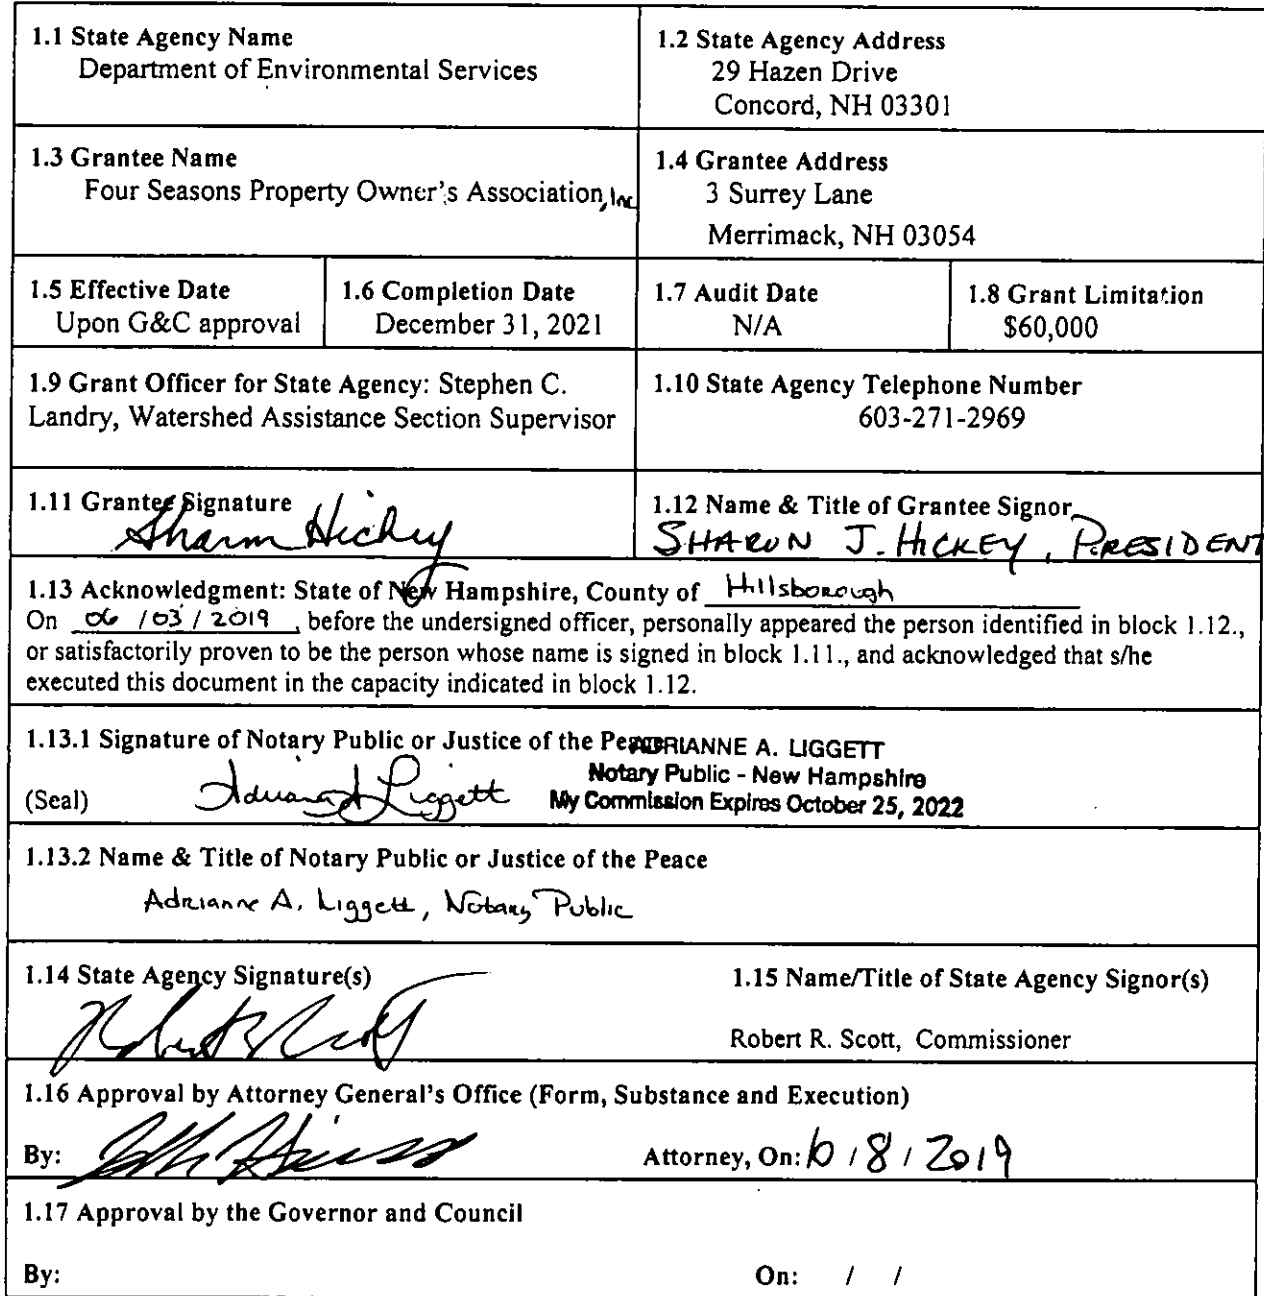 1.1 State Agency Name
Department of Environmental Services
1.2 State Agency Address
29 Hazen Drive
Concord, NH 03301
1.3 Grantee Name
Four Seasons Property Owner's Association, Inc
1.4 Grantee Address
3 Surrey Lane
Merrimack, NH 03054
1.5 Effective Date
Upon G&C approval
1.6 Completion Date
December 31, 2021
1.7 Audit Date
N/A
1.8 Grant Limitation
$60,000
1.9 Grant Officer for State Agency: Stephen C.
Landry, Watershed Assistance Section Supervisor
1.10 State Agency Telephone Number
603-271-2969
1.11 Grantee Signature
Sharon Hickey
1.12 Name & Title of Grantee Signor
SHARON J. HICKEY, PRESIDENT
1.13 Acknowledgment: State of New Hampshire, County of Hillsborough
On 06 / 03 / 2019, before the undersigned officer, personally appeared the person identified in block 1.12.,
or satisfactorily proven to be the person whose name is signed in block 1.11., and acknowledged that s/he
executed this document in the capacity indicated in block 1.12.
1.13.1 Signature of Notary Public or Justice of the Peace
ADRIANNE A. LIGGETT
Notary Public - New Hampshire
My Commission Expires October 25, 2022
(Seal)
Adrianne A Liggett
1.13.2 Name & Title of Notary Public or Justice of the Peace
Adrianne A. Liggett, Notary Public
1.14 State Agency Signature(s)
1.15 Name/Title of State Agency Signor(s)
Robert R. Scott, Commissioner
1.16 Approval by Attorney General's Office (Form, Substance and Execution)
By:
Attorney, On: 6 / 8 / 2019
1.17 Approval by the Governor and Council
By:
On: / /